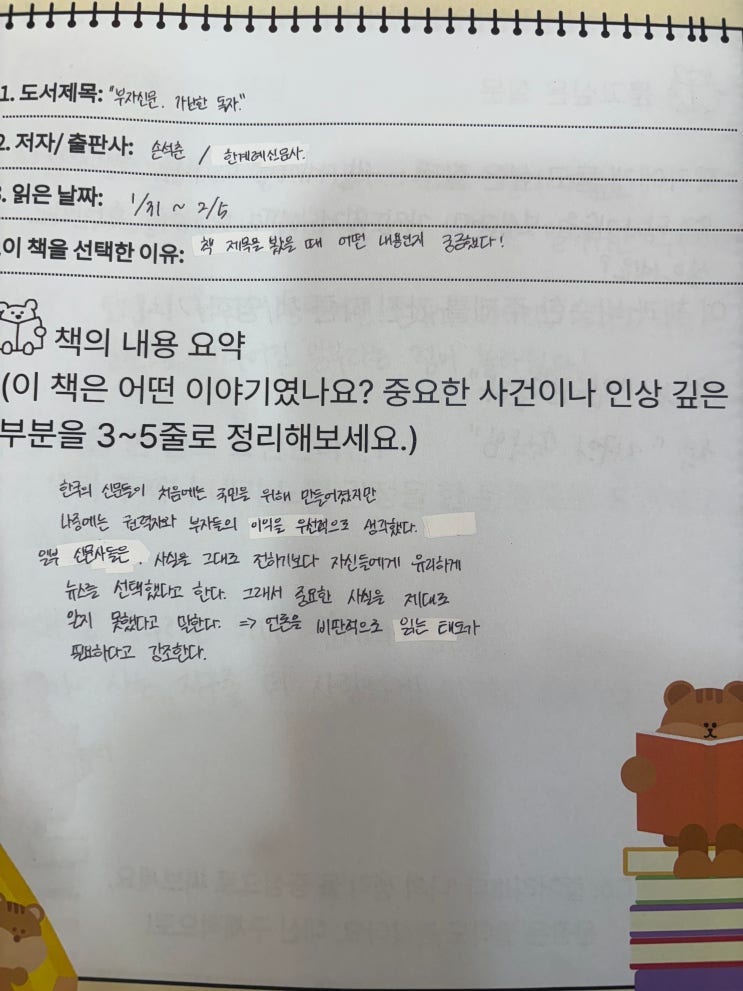 1. 도서제목: "부자신문, 가난한 독자."
2. 저자/ 출판사: 손석춘 / 한겨레신문사.
3. 읽은 날짜: 1/31 ~ 2/5
이 책을 선택한 이유: 책 제목을 봤을 때 어떤 내용인지 궁금했다!
책의 내용 요약
(이 책은 어떤 이야기였나요? 중요한 사건이나 인상 깊은
부분을 3~5줄로 정리해보세요.)
한국의 신문들이 처음에는 국민을 위해 만들어졌지만
나중에는 권력자와 부자들의 이익을 우선적으로 생각했다.
일부 신문사들은, 사실을 그대로 전하기보다 자신들에게 유리하게
뉴스를 선택했다고 한다. 그래서 중요한 사실을 제대로
알지 못했다고 말한다. => 언론을 비판적으로 읽는 태도가
필요하다고 강조한다.